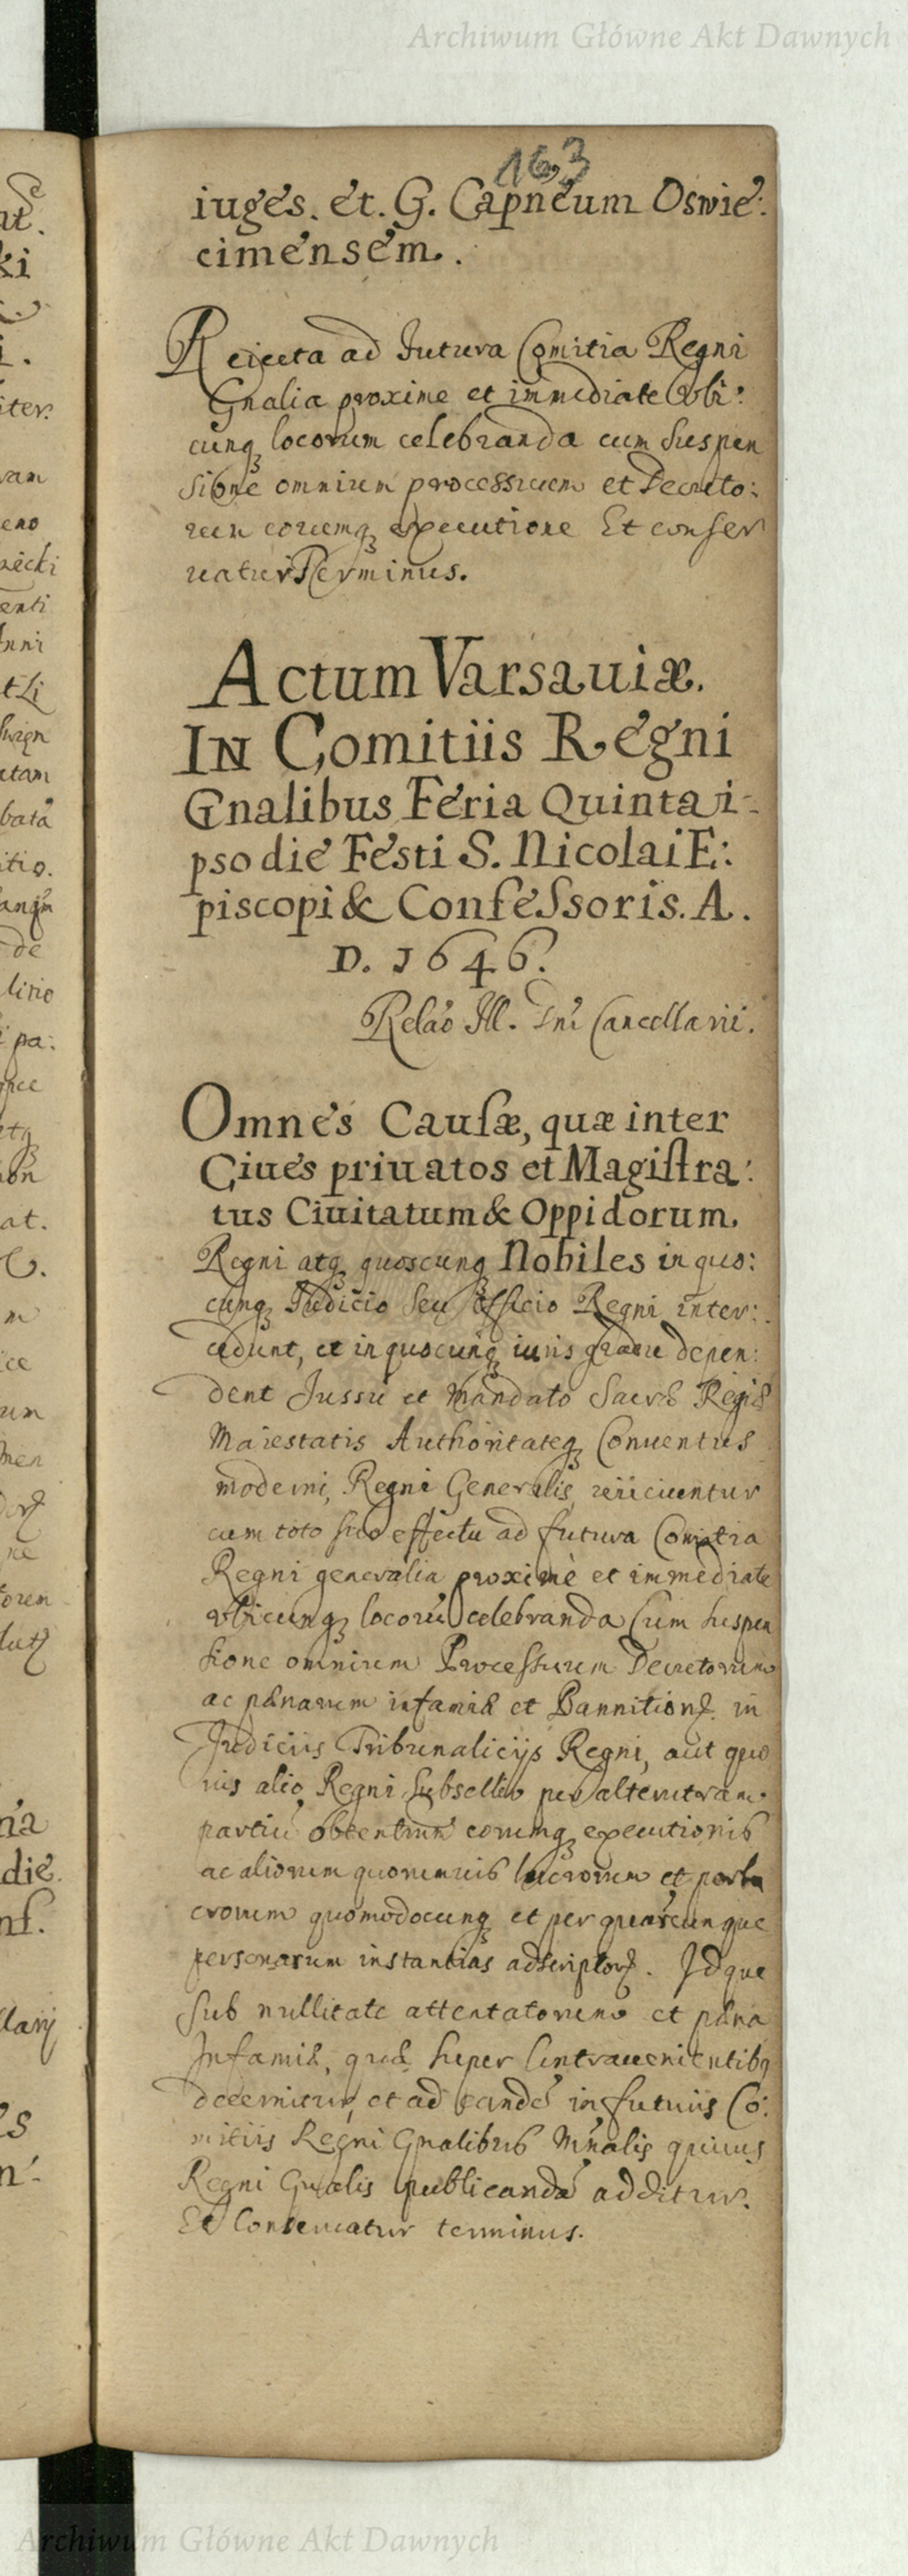 Archiwum Główne Akt Dawnych
163
iuges. et. G. Capneum Oswie:
cimensem.
Reiecta ad Futura Comitia Regni
Gnalia proxime et immediate Vbi:
cunq locorum celebranda cum suspen
sione omnium processuum et Decreto:
rum eorumq executione Et conser
uatur Terminus.
Actum Varsauiæ.
IN Comitiis Regni
Gnalibus Feria Quinta i-
pso die Festi S. Nicolai E:
piscopi & Confeſsoris. A.
D. 1646.
Relaō Ill. Dni Cancellarii.
Omnes Cauſæ, quæ inter
Ciues priuatos et Magiſtra:
tus Ciuitatum & Oppidorum.
Regni atq quoscunq Nobiles in quo:
cunq Iudicio seu Officio Regni inter:
cedunt, et in quocunq iuris gradu depen:
dent Jussu et Mandato Sacræ Regiæ
Maiestatis Authoritateq Conuentus
moderni, Regni Generalis reiiciuntur
cum toto suo effectu ad futura Comitia
Regni generalia proximè et immediate
vbicunq locorū celebranda Cum suspen
sione omnium Processuum Decretorum
ac pænarum infamiæ et Bannition in
Judiciis Tribunaliciis Regni, aut quo
uis alio Regni Subsellio per alterutram
partiū obtentum eorumq executionis
ac aliorum quorumuis lucrorum et perlu
crorum quomodocunq et per quascunque
personarum instantias adscriptor. Idque
sub nullitate attentatorum et pæna
Infamiæ, quæ super Contrauenientibq
decernitur, et ad eandē in futuris Co:
mitiis Regni Gnalibus Mrialis quiuus
Regni Gnalis publicandā additur.
Et Conseruatur terminus.
Archiwum Główne Akt Dawnych